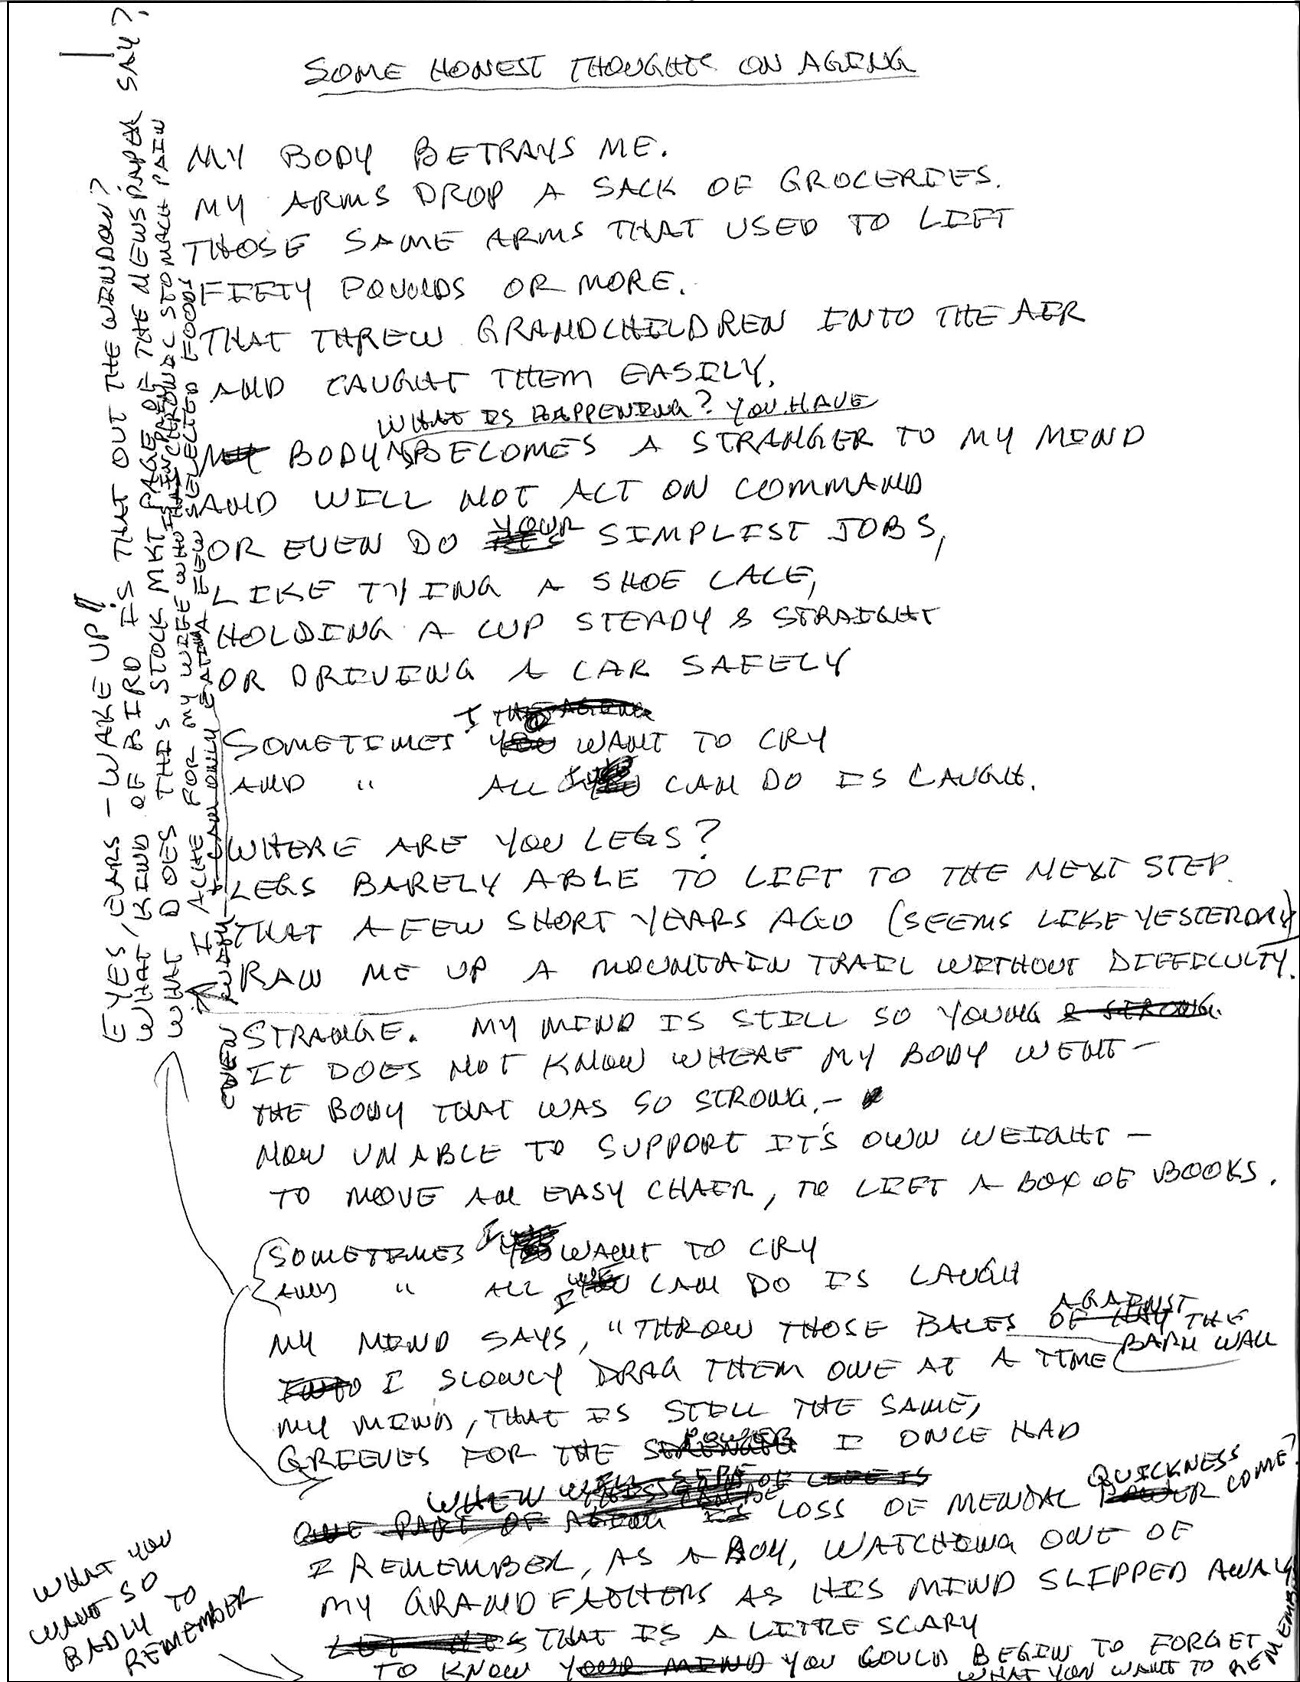 SOME HONEST THOUGHTS ON AGEING
MY BODY BETRAYS ME.
MY ARMS DROP A SACK OF GROCERIES.
THOSE SAME ARMS THAT USED TO LIFT
FIFTY POUNDS OR MORE.
THAT THREW GRANDCHILDREN INTO THE AIR
AND CAUGHT THEM EASILY.
WHAT IS HAPPENING? YOU HAVE
MY BODY BECOMES A STRANGER TO MY MIND
AND WILL NOT ACT ON COMMAND
YOUR
OR EVEN DO SIMPLEST JOBS,
LIKE TYING A SHOE LACE,
HOLDING A CUP STEADY & STRAIGHT
OR DRIVING A CAR SAFELY
I THE AGEING
SOMETIMES YOU WANT TO CRY
AND " ALL CAN DO IS LAUGH.
WHERE ARE YOU LEGS?
LEGS BARELY ABLE TO LIFT TO THE NEXT STEP.
THAT A FEW SHORT YEARS AGO (SEEMS LIKE YESTERDAY)
RAN ME UP A MOUNTAIN TRAIL WITHOUT DIFFICULTY.
STRANGE. MY MIND IS STILL SO YOUNG & STRONG.
IT DOES NOT KNOW WHERE MY BODY WENT –
THE BODY THAT WAS SO STRONG. –
NOW UNABLE TO SUPPORT IT'S OWN WEIGHT –
TO MOVE AN EASY CHAIR, TO LIFT A BOX OF BOOKS.
SOMETIMES I WANT TO CRY
AND " ALL I CAN DO IS LAUGH
AGAINST
MY MIND SAYS, "THROW THOSE BALES OF HAY THE
BARN WALL
INTO I SLOWLY DRAG THEM ONE AT A TIME
MY MIND, THAT IS STILL THE SAME,
POWER
GRIEVES FOR THE STRENGTH I ONCE HAD
WHEN WILL
QUICKNESS
ONE PART OF AGEING IS LOSS OF MENTAL POWER COME?
I REMEMBER, AS A BOY, WATCHING ONE OF
MY GRAND FATHERS AS HIS MIND SLIPPED AWAY
THAT IS A LITTLE SCARY
TO KNOW YOUR MIND YOU COULD BEGIN TO FORGET
WHAT YOU WANT TO REMEMBER
WHAT YOU
WANT SO
BADLY TO
REMEMBER
EYES, EARS – WAKE UP!!
WHAT KIND OF BIRD IS THAT OUT THE WINDOW?
WHAT DOES THIS STOCK MKT PAGE OF THE NEWSPAPER SAY?
I ACHE FOR MY WIFE WHO IS IN CHRONIC STOMACH PAIN
CAN ONLY EAT A FEW SELECTED FOODS